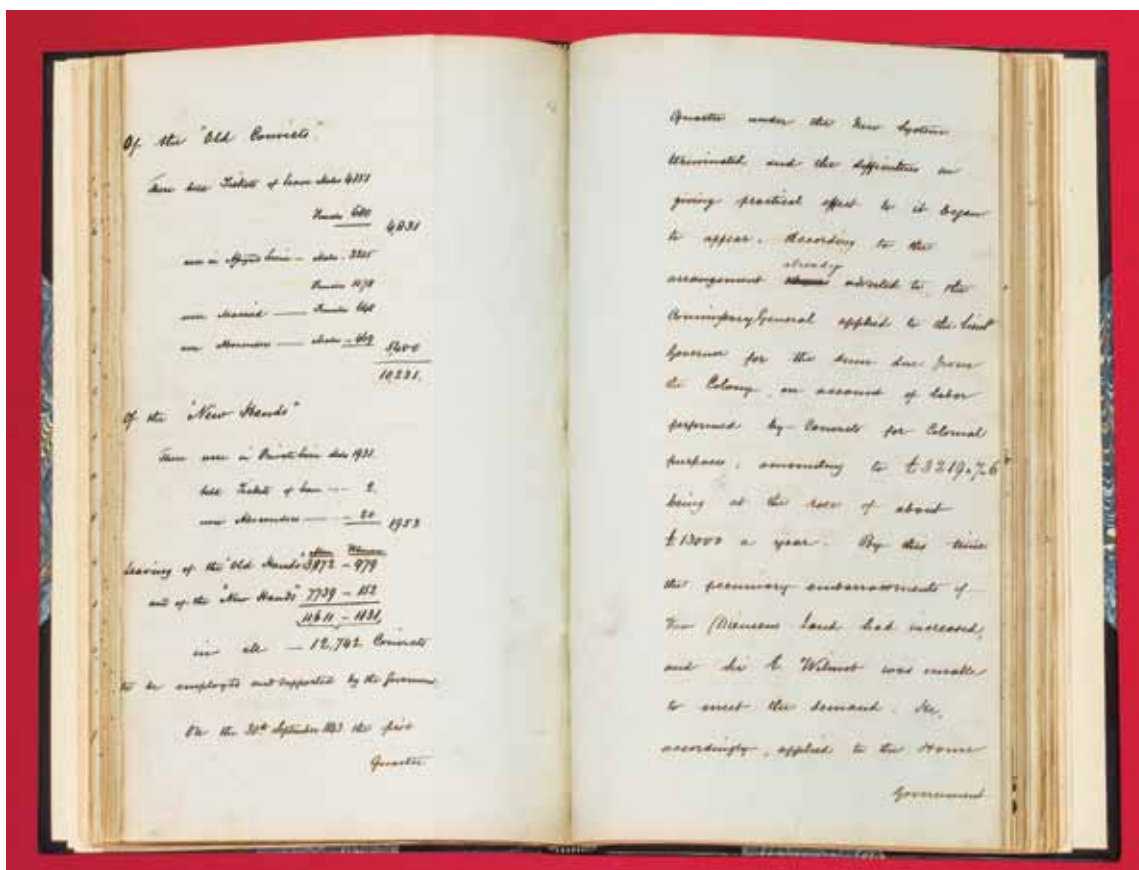 Of the "Old Convicts"
There held Tickets of leave Males 4151
Females 680
4831
were in Assigned Service – Males . 3205
Females 1078
were Married —— Females 648
were Absconders —— Males – 469
5400
10231.
Of the "New Hands"
There were in Private Service Males 1931.
held Tickets of leave --- 2.
were Absconders —— – 20
1953
Men Women
Leaving of the "Old Hands" 3872 – 979
and of the "New Hands" 7739 – 152
11611 – 1131,
in all – 12,742 Convicts
to be employed and supported by the Government.
On the 30th September 1843 the first
Quarter
Quarter under the New System
terminated, and the difficulties in
giving practical effect to it began
to appear. According to the
already
arrangement adverted to, the
Commissary General applied to the Lieut
Governor for the sum due from
the Colony, on account of labor
performed by Convicts for Colonial
purposes, amounting to £3219.7.6
being at the rate of about
£13000 a year. By this time
the pecuniary embarrassments of
Van Diemens Land had increased,
and Sir E Wilmot was unable
to meet the demand. He,
accordingly, applied to the Home
Government